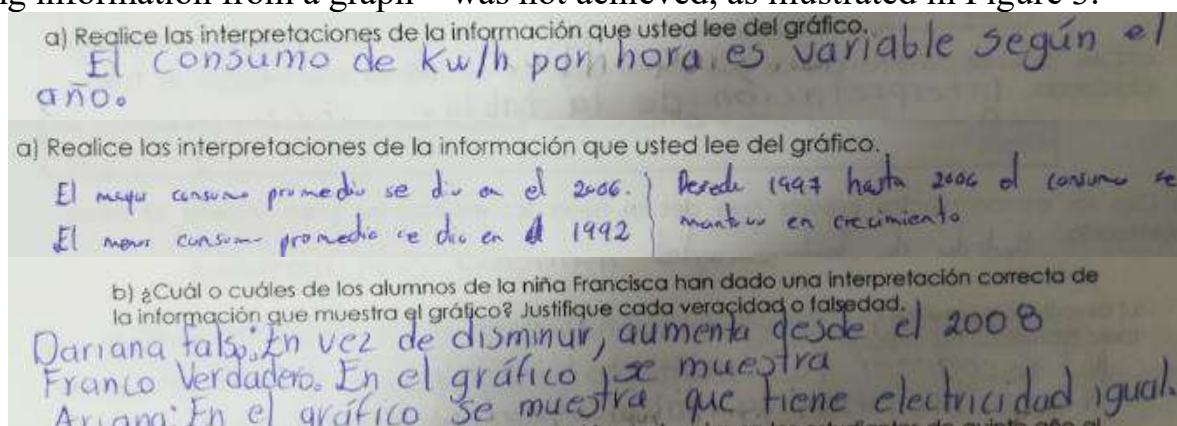 ing information from a graph – was not achieved, as illustrated in Figure 5.
a) Realice las interpretaciones de la información que usted lee del gráfico.
El consumo de Kw/h por hora es variable según el
año.
a) Realice las interpretaciones de la información que usted lee del gráfico.
El mayor consumo promedio se dio en el 2006.
El menor consumo promedio se dio en el 1992
Desede 1997 hasta 2006 el consumo se
mantuvo en crecimiento
b) ¿Cuál o cuáles de los alumnos de la niña Francisca han dado una interpretación correcta de
la información que muestra el gráfico? Justifique cada veracidad o falsedad.
Dariana falso: En vez de disminuir, aumenta desde el 2008
Franco Verdadero. En el gráfico se muestra
Ariana: En el gráfico se muestra que tiene electricidad igual.